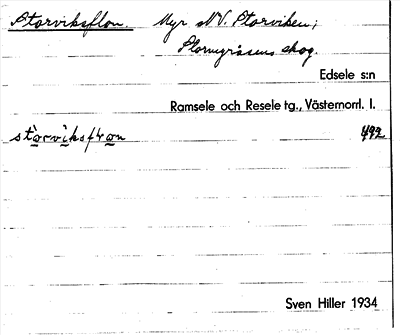 Storviksflon. Myr NV. Storviken;
skog.
Edsele s:n
Ramsele och Resele tg., Västernorrl. l.
492
Sven Hiller 1934